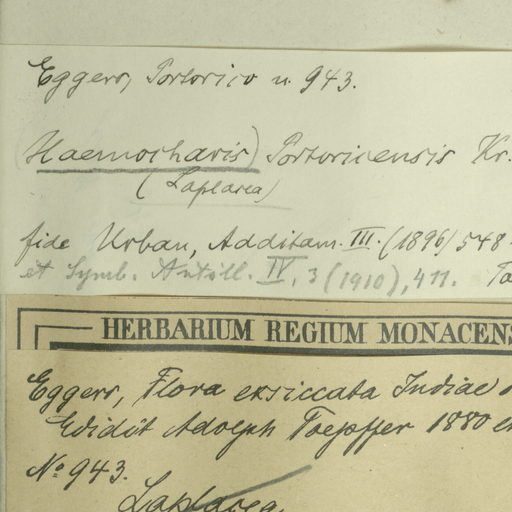 Eggers, Portorico n. 943.
(Haemocharis) Portoricensis Kr.
(Laplacea)
fide Urban, Additam. III. (1896) 548
et Symb. Antill. IV, 3 (1910), 411.
HERBARIUM REGIUM MONACENS
Eggers, Flora exsiccata Indiae
Edidit Adolph Toepffer 1880
No 943.
Laplacea